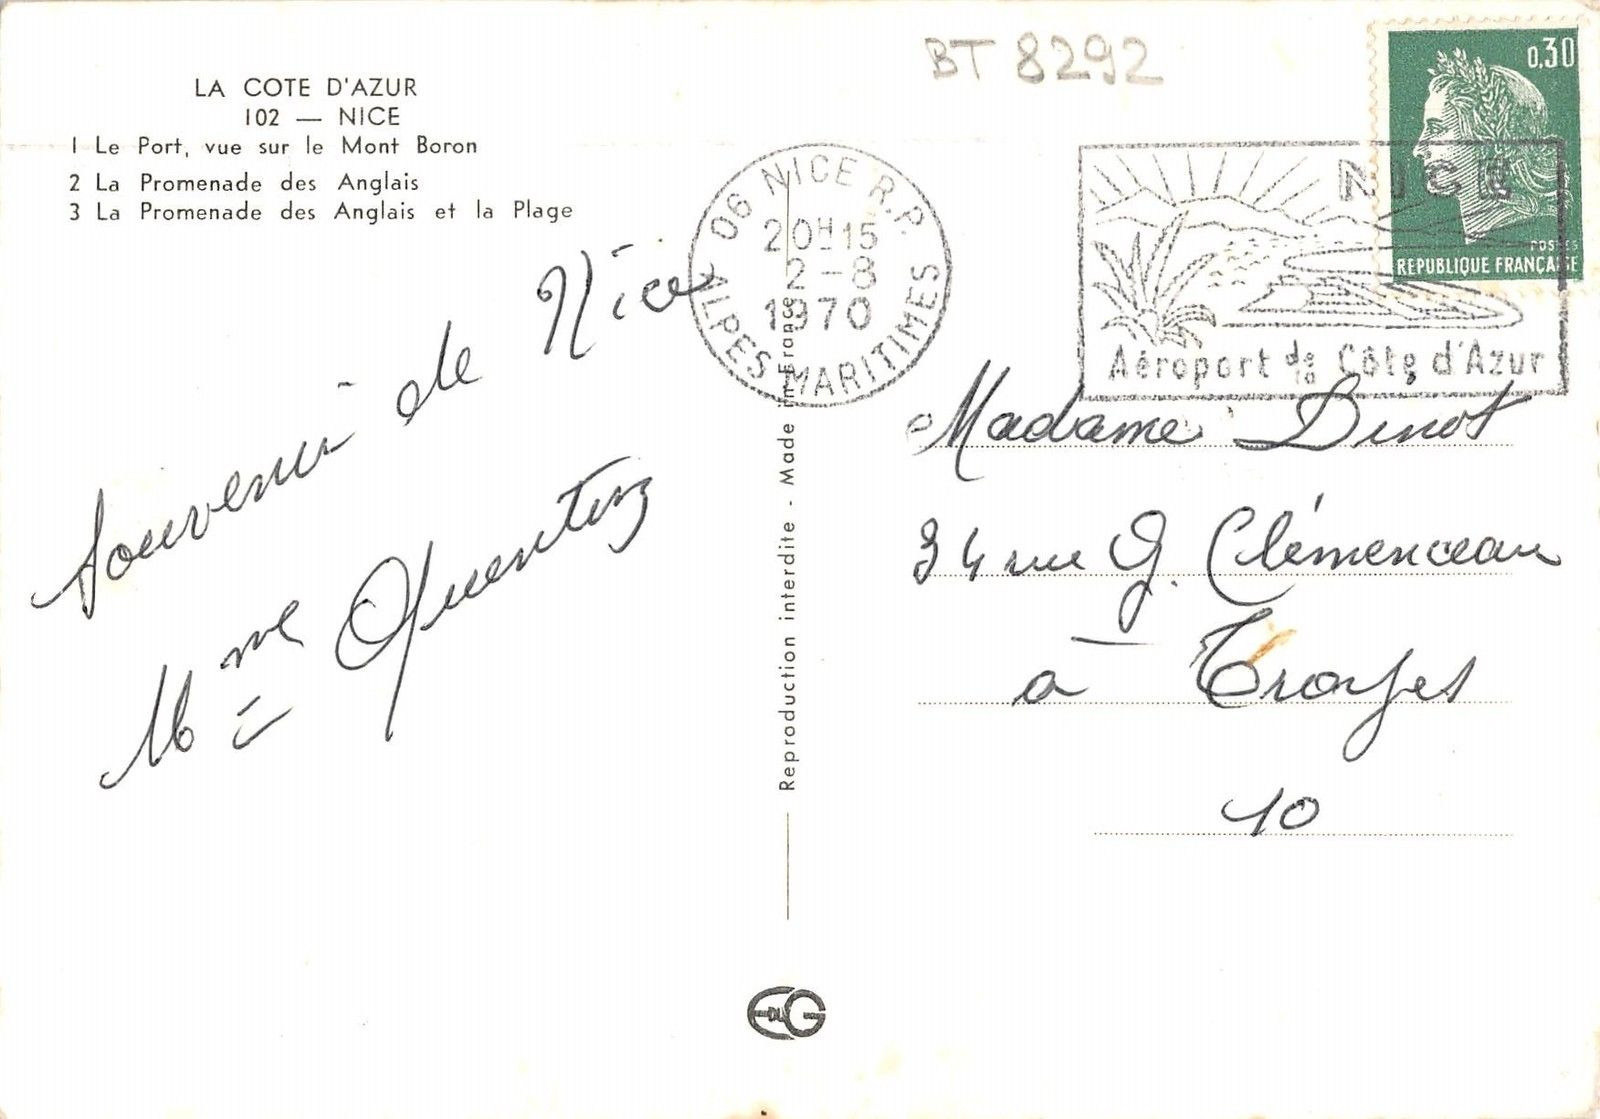 BT 8292
LA COTE D'AZUR
102 — NICE
1 Le Port, vue sur le Mont Boron
2 La Promenade des Anglais
3 La Promenade des Anglais et la Plage
Souvenir de Nice
Mme Quentin
06 NICE R.P.
20H15
2-8
1970
ALPES MARITIMES
Reproduction interdite - Made in France
0,30
POSTES
REPUBLIQUE FRANÇAISE
NICE
Aéroport de la Côte d'Azur
Madame Dinot
34 rue G. Clémenceau
à Troyes
10
EDUG